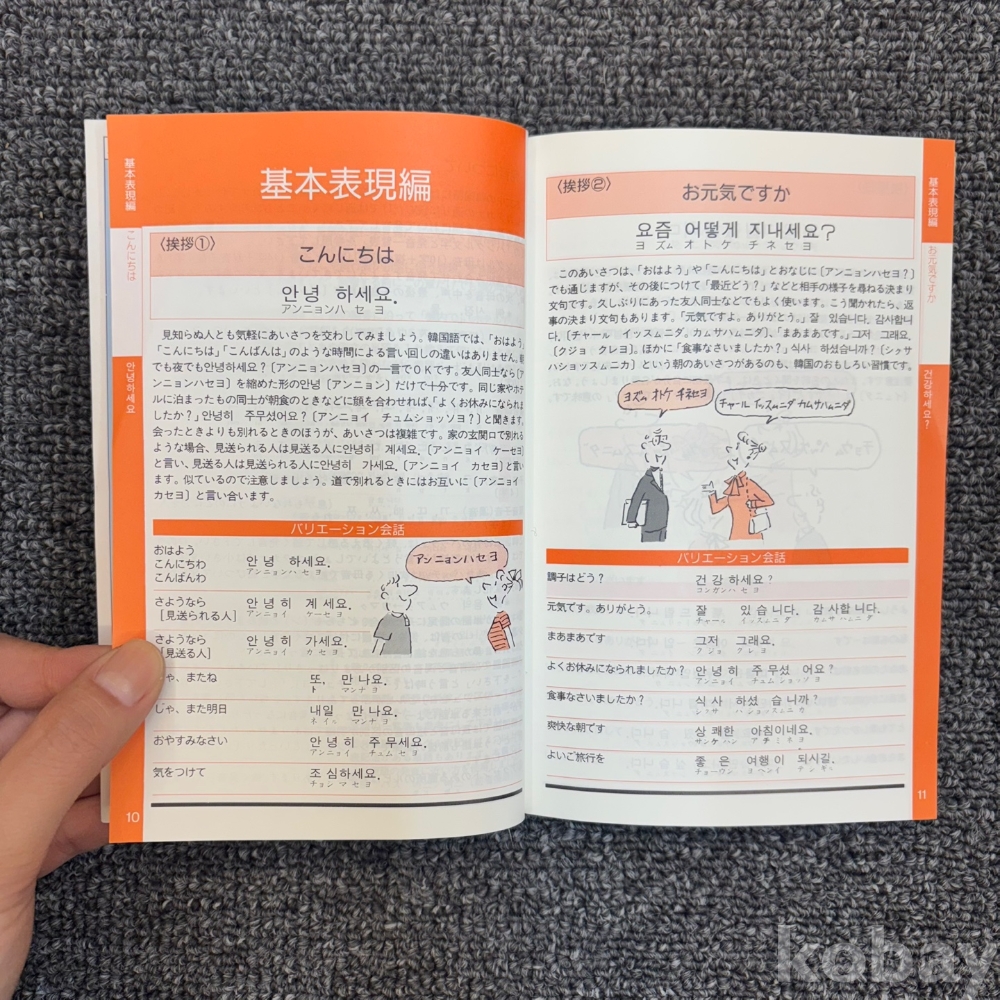 基本表現編
こんにちは
안녕하세요
10
基本表現編
〈挨拶①〉
こんにちは
안녕 하세요.
アンニョンハ セ ヨ
見知らぬ人とも気軽にあいさつを交わしてみましょう。韓国語では、「おはよう」
「こんにちは」「こんばんは」のような時間による言い回しの違いはありません。朝
でも夜でも안녕하세요?〔アンニョンハセヨ〕の一言でOKです。友人同士なら〔ア
ンニョンハセヨ〕を縮めた形の안녕〔アンニョン〕だけで十分です。同じ家やホテ
ルに泊まったもの同士が朝食のときなどに顔を合わせれば、「よくお休みになられま
したか?」안녕히 주무셨어요?〔アンニョイ チュムショッソヨ?〕と聞きます。
会ったときよりも別れるときのほうが、あいさつは複雑です。家の玄関口で別れる
ような場合、見送られる人は見送る人に안녕히 계세요,〔アンニョイ ケーセヨ〕
と言い、見送る人は見送られる人に안녕히 가세요,〔アンニョイ カセヨ〕と言い
ます。似ているので注意しましょう。道で別れるときにはお互いに〔アンニョイ
カセヨ〕と言い合います。
バリエーション会話
アンニョンハセヨ
おはよう
こんにちわ
こんばんわ
안녕 하세요.
アンニョンハ セ ヨ
さようなら
[見送られる人]
안녕히 계세요.
アンニョイ ケーセヨ
さようなら
[見送る人]
안녕히 가세요.
アンニョイ カ セ ヨ
じゃ、またね
또, 만나요.
ト マンナ ヨ
じゃ、また明日
내일 만나요.
ネイル マンナ ヨ
おやすみなさい
안녕히 주무세요.
アンニョイ チュム セ ヨ
気をつけて
조심하세요.
チョシ マ セ ヨ
〈挨拶②〉
お元気ですか
요즘 어떻게 지내세요?
ヨ ズム オ ト ケ チ ネ セ ヨ
このあいさつは、「おはよう」や「こんにちは」とおなじに〔アンニョンハセヨ?〕
でも通じますが、その後につけて「最近どう?」などと相手の様子を尋ねる決まり
文句です。久しぶりにあった友人同士などでもよく使います。こう聞かれたら、返
事の決まり文句もあります。「元気ですよ。ありがとう。」잘 있습니다. 감사합니
다.〔チャール イッスムニダ。カムサハムニダ〕、「まあまあです。」그저 그래요.
〔クジョ クレヨ〕。ほかに「食事なさいましたか?」식사 하셨습니까?〔シクサ
ハショッスムニカ〕という朝のあいさつがあるのも、韓国のおもしろい習慣です。
ヨズム オトケ チネセヨ
チャール イッスムニダ カムサハムニダ
バリエーション会話
調子はどう?
건강하세요?
コンガンハ セ ヨ
元気です。ありがとう。
잘 있습니다. 감사합니다.
チャール イッスムニダ カムサ ハムニダ
まあまあです
그저 그래요.
ク ジョ ク レ ヨ
よくお休みになられましたか?
안녕히 주무셨어요?
アンニョイ チュム ショッソ ヨ
食事なさいましたか?
식사 하셨습니까?
爽快な朝です
상쾌한 아침이네요.
サンケ ハン ア チ ミ ネ ヨ
よいご旅行を
좋은 여행이 되시길.
基本表現編
お元気ですか
건강하세요?
11
kobay